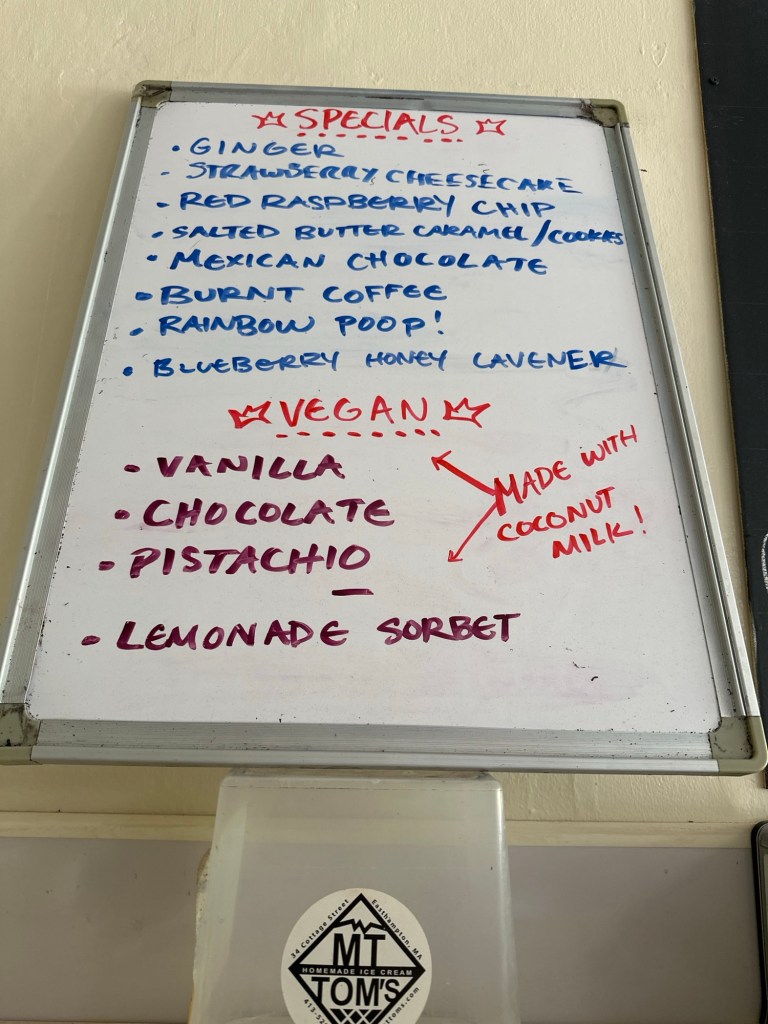 SPECIALS
• GINGER
• STRAWBERRY CHEESECAKE
• RED RASPBERRY CHIP
• SALTED BUTTER CARAMEL/COOKIES
• MEXICAN CHOCOLATE
• BURNT COFFEE
• RAINBOW POOP!
• BLUEBERRY HONEY LAVENER
VEGAN
• VANILLA
• CHOCOLATE
• PISTACHIO
MADE WITH
COCONUT
MILK!
• LEMONADE SORBET
34 Cottage Street
Easthampton, MA
MT
HOMEMADE ICE CREAM
TOM'S